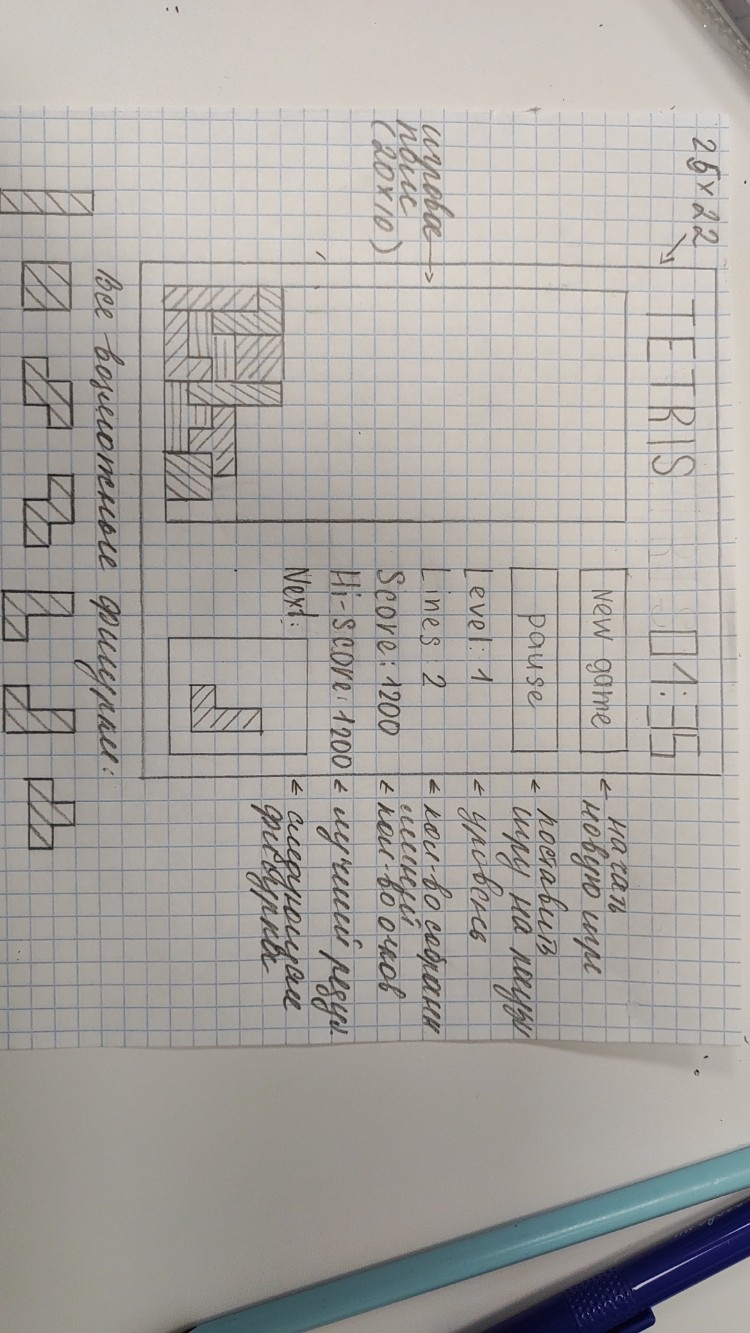 25×22
TETRIS 01:35
New game ← начать
новую игр
pause ← поставить
игру на паузу
Level: 1 ← уровень
Lines: 2 ← кол-во собранн
линий
игровое
поле
(20×10)
Score: 1200 ← кол-во очков
Hi-score: 1200 ← лучший резул.
Next: ← следующая
фигурка
Все возможные фигурки: